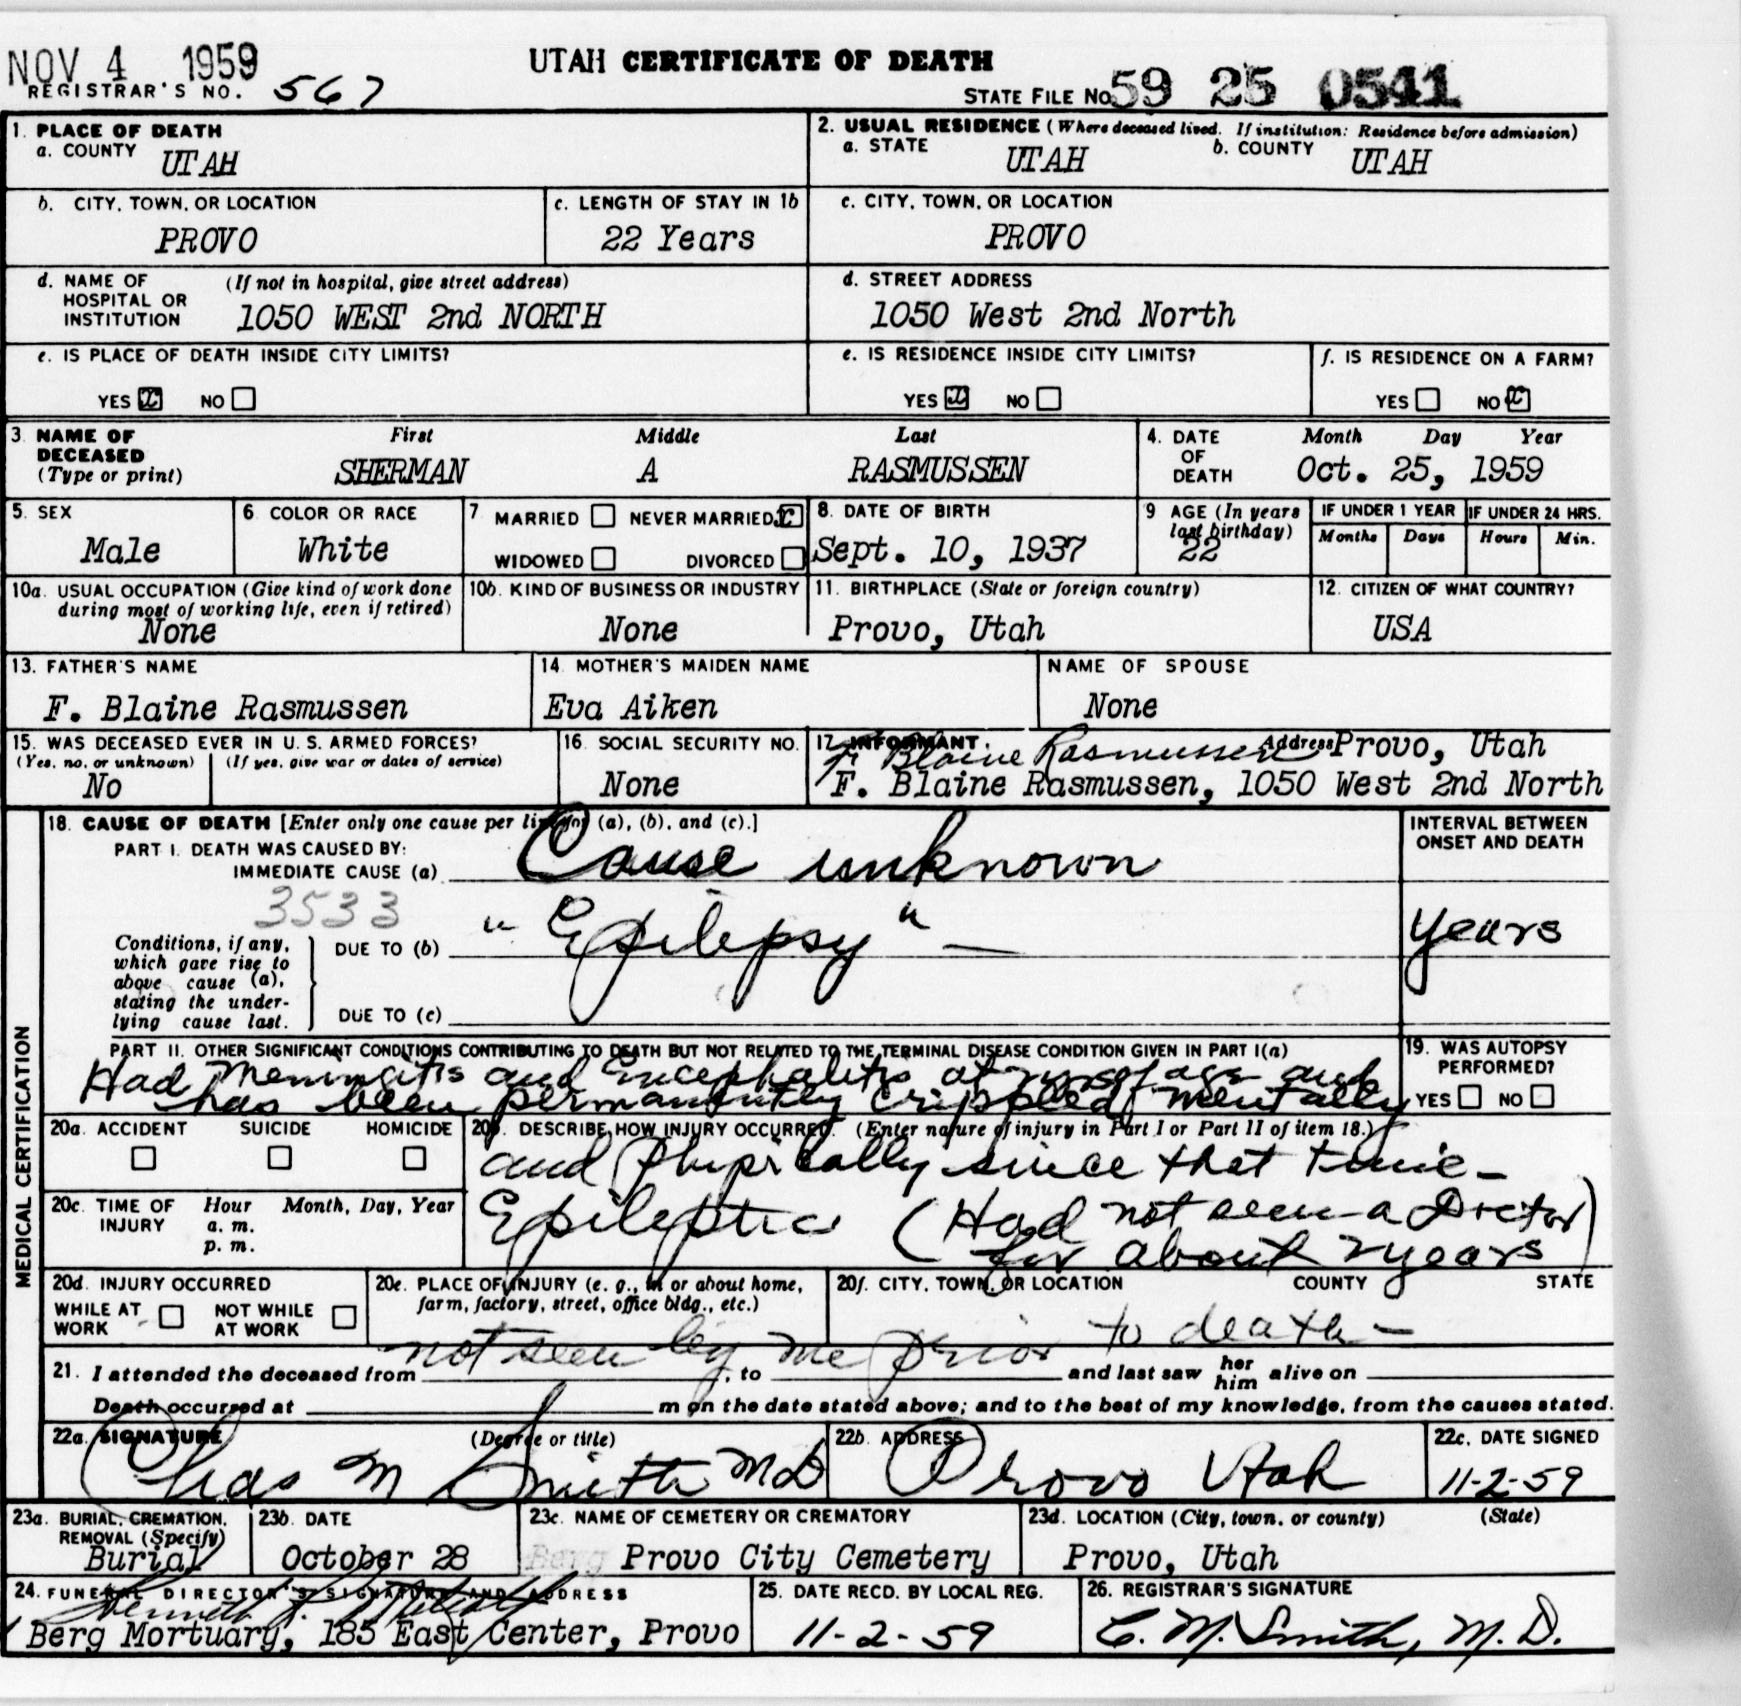 NOV 4 1959
UTAH CERTIFICATE OF DEATH
REGISTRAR'S NO. 567
STATE FILE No. 59 25 0541
1. PLACE OF DEATH
a. COUNTY UTAH
2. USUAL RESIDENCE (Where deceased lived. If institution: Residence before admission)
a. STATE UTAH b. COUNTY UTAH
b. CITY, TOWN, OR LOCATION
PROVO
c. LENGTH OF STAY IN 1b
22 Years
c. CITY, TOWN, OR LOCATION
PROVO
d. NAME OF HOSPITAL OR INSTITUTION (If not in hospital, give street address)
1050 WEST 2nd NORTH
d. STREET ADDRESS
1050 West 2nd North
e. IS PLACE OF DEATH INSIDE CITY LIMITS?
YES x NO
e. IS RESIDENCE INSIDE CITY LIMITS?
YES x NO
f. IS RESIDENCE ON A FARM?
YES NO x
3. NAME OF DECEASED (Type or print)
First Middle Last
SHERMAN A RASMUSSEN
4. DATE OF DEATH
Month Day Year
Oct. 25, 1959
5. SEX
Male
6. COLOR OR RACE
White
7 MARRIED NEVER MARRIED x
WIDOWED DIVORCED
8. DATE OF BIRTH
Sept. 10, 1937
9 AGE (In years last birthday)
22
IF UNDER 1 YEAR
Months Days
IF UNDER 24 HRS.
Hours Min.
10a. USUAL OCCUPATION (Give kind of work done during most of working life, even if retired)
None
10b. KIND OF BUSINESS OR INDUSTRY
None
11. BIRTHPLACE (State or foreign country)
Provo, Utah
12. CITIZEN OF WHAT COUNTRY?
USA
13. FATHER'S NAME
F. Blaine Rasmussen
14. MOTHER'S MAIDEN NAME
Eva Aiken
NAME OF SPOUSE
None
15. WAS DECEASED EVER IN U. S. ARMED FORCES?
(Yes, no, or unknown) (If yes, give war or dates of service)
No
16. SOCIAL SECURITY NO.
None
17. INFORMANT. Address Provo, Utah
F Blaine Rasmussen
F. Blaine Rasmussen, 1050 West 2nd North
MEDICAL CERTIFICATION
18. CAUSE OF DEATH [Enter only one cause per line for (a), (b), and (c).]
PART I. DEATH WAS CAUSED BY:
IMMEDIATE CAUSE (a) Cause unknown
INTERVAL BETWEEN ONSET AND DEATH
3533
Conditions, if any, which gave rise to above cause (a), stating the underlying cause last.
DUE TO (b) "Epilepsy" — years
DUE TO (c)
PART II. OTHER SIGNIFICANT CONDITIONS CONTRIBUTING TO DEATH BUT NOT RELATED TO THE TERMINAL DISEASE CONDITION GIVEN IN PART I(a)
Had Meningitis and Encephalitis at yrs of age and
has been permanently crippled mentally
19. WAS AUTOPSY PERFORMED?
YES NO
20a. ACCIDENT SUICIDE HOMICIDE
20b. DESCRIBE HOW INJURY OCCURRED. (Enter nature of injury in Part I or Part II of item 18.)
and physically since that time -
Epileptic (Had not seen a Doctor
for about 2 years)
20c. TIME OF INJURY Hour Month, Day, Year
a. m.
p. m.
20d. INJURY OCCURRED
WHILE AT WORK NOT WHILE AT WORK
20e. PLACE OF INJURY (e. g., in or about home, farm, factory, street, office bldg., etc.)
20f. CITY, TOWN, OR LOCATION COUNTY STATE
not seen by me prior to death -
21. I attended the deceased from , to and last saw her him alive on
Death occurred at m on the date stated above; and to the best of my knowledge, from the causes stated.
22a. SIGNATURE (Degree or title)
Chas M Smith MD
22b. ADDRESS
Provo Utah
22c. DATE SIGNED
11-2-59
23a. BURIAL, CREMATION, REMOVAL (Specify)
Burial
23b. DATE
October 28
23c. NAME OF CEMETERY OR CREMATORY
Berg Provo City Cemetery
23d. LOCATION (City, town, or county) (State)
Provo, Utah
24. FUNERAL DIRECTOR'S SIGNATURE AND ADDRESS
Berg Mortuary, 185 East Center, Provo
25. DATE RECD. BY LOCAL REG.
11-2-59
26. REGISTRAR'S SIGNATURE
C. M. Smith, M. D.